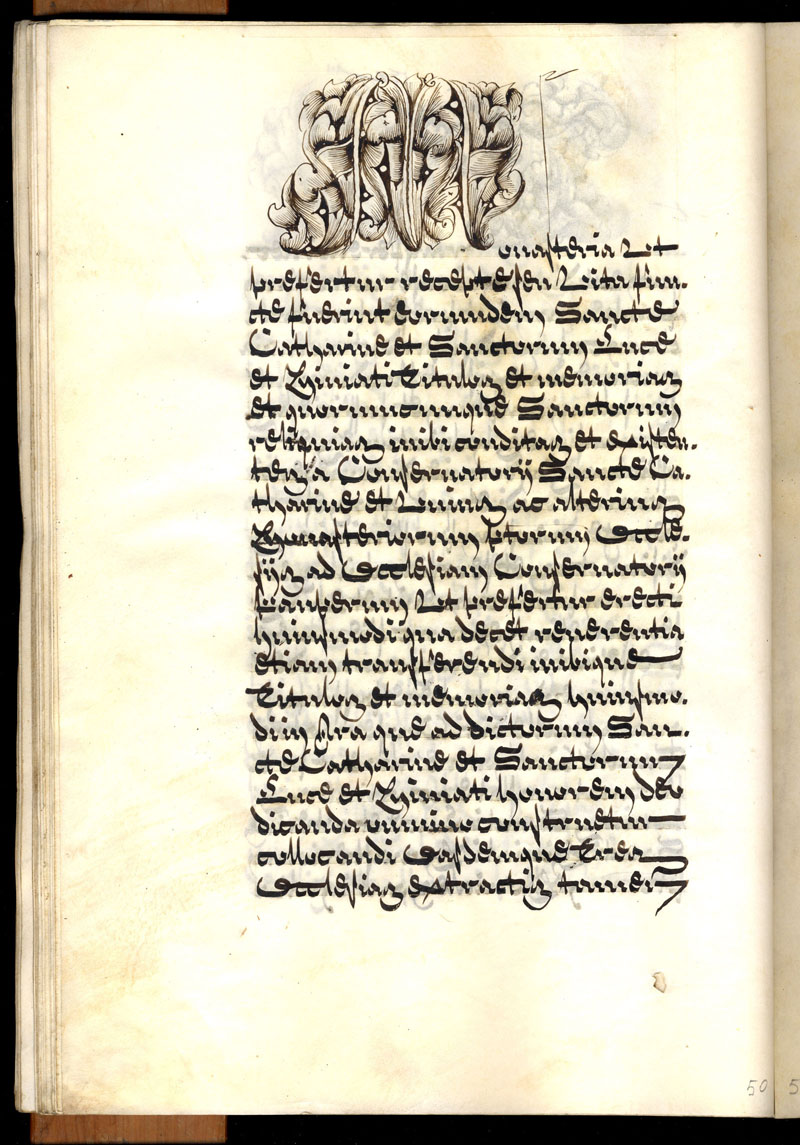 Monasteria Ut
prefertur recepte seu Lita fun.
cte fuerint eorumdem Sancte
Catharine et Sanctorum Luce
et Miniati Titulos et memorias
et quorumcunque Sanctorum
reliquias inibi conditas et existen.
tes a Conservatorij Sancte Ca.
tharine et Unius ac alterius
Monasteriorum ptorum Eccle.
sijs ad Ecclesiam Conservatorij
Pauperum Ut prefertur erecti
huiusmodi qua decet reverentia
etiam transferendi inibique
Titulos et memorias huiusmo.
di in Ara que ad dictorum San.
cte Catharine et Sanctorum
Luce et Miniati honorem deo
dicanda omnino construetur
collocandi Easdemque Tres
Ecclesias extractis tamen
50
5